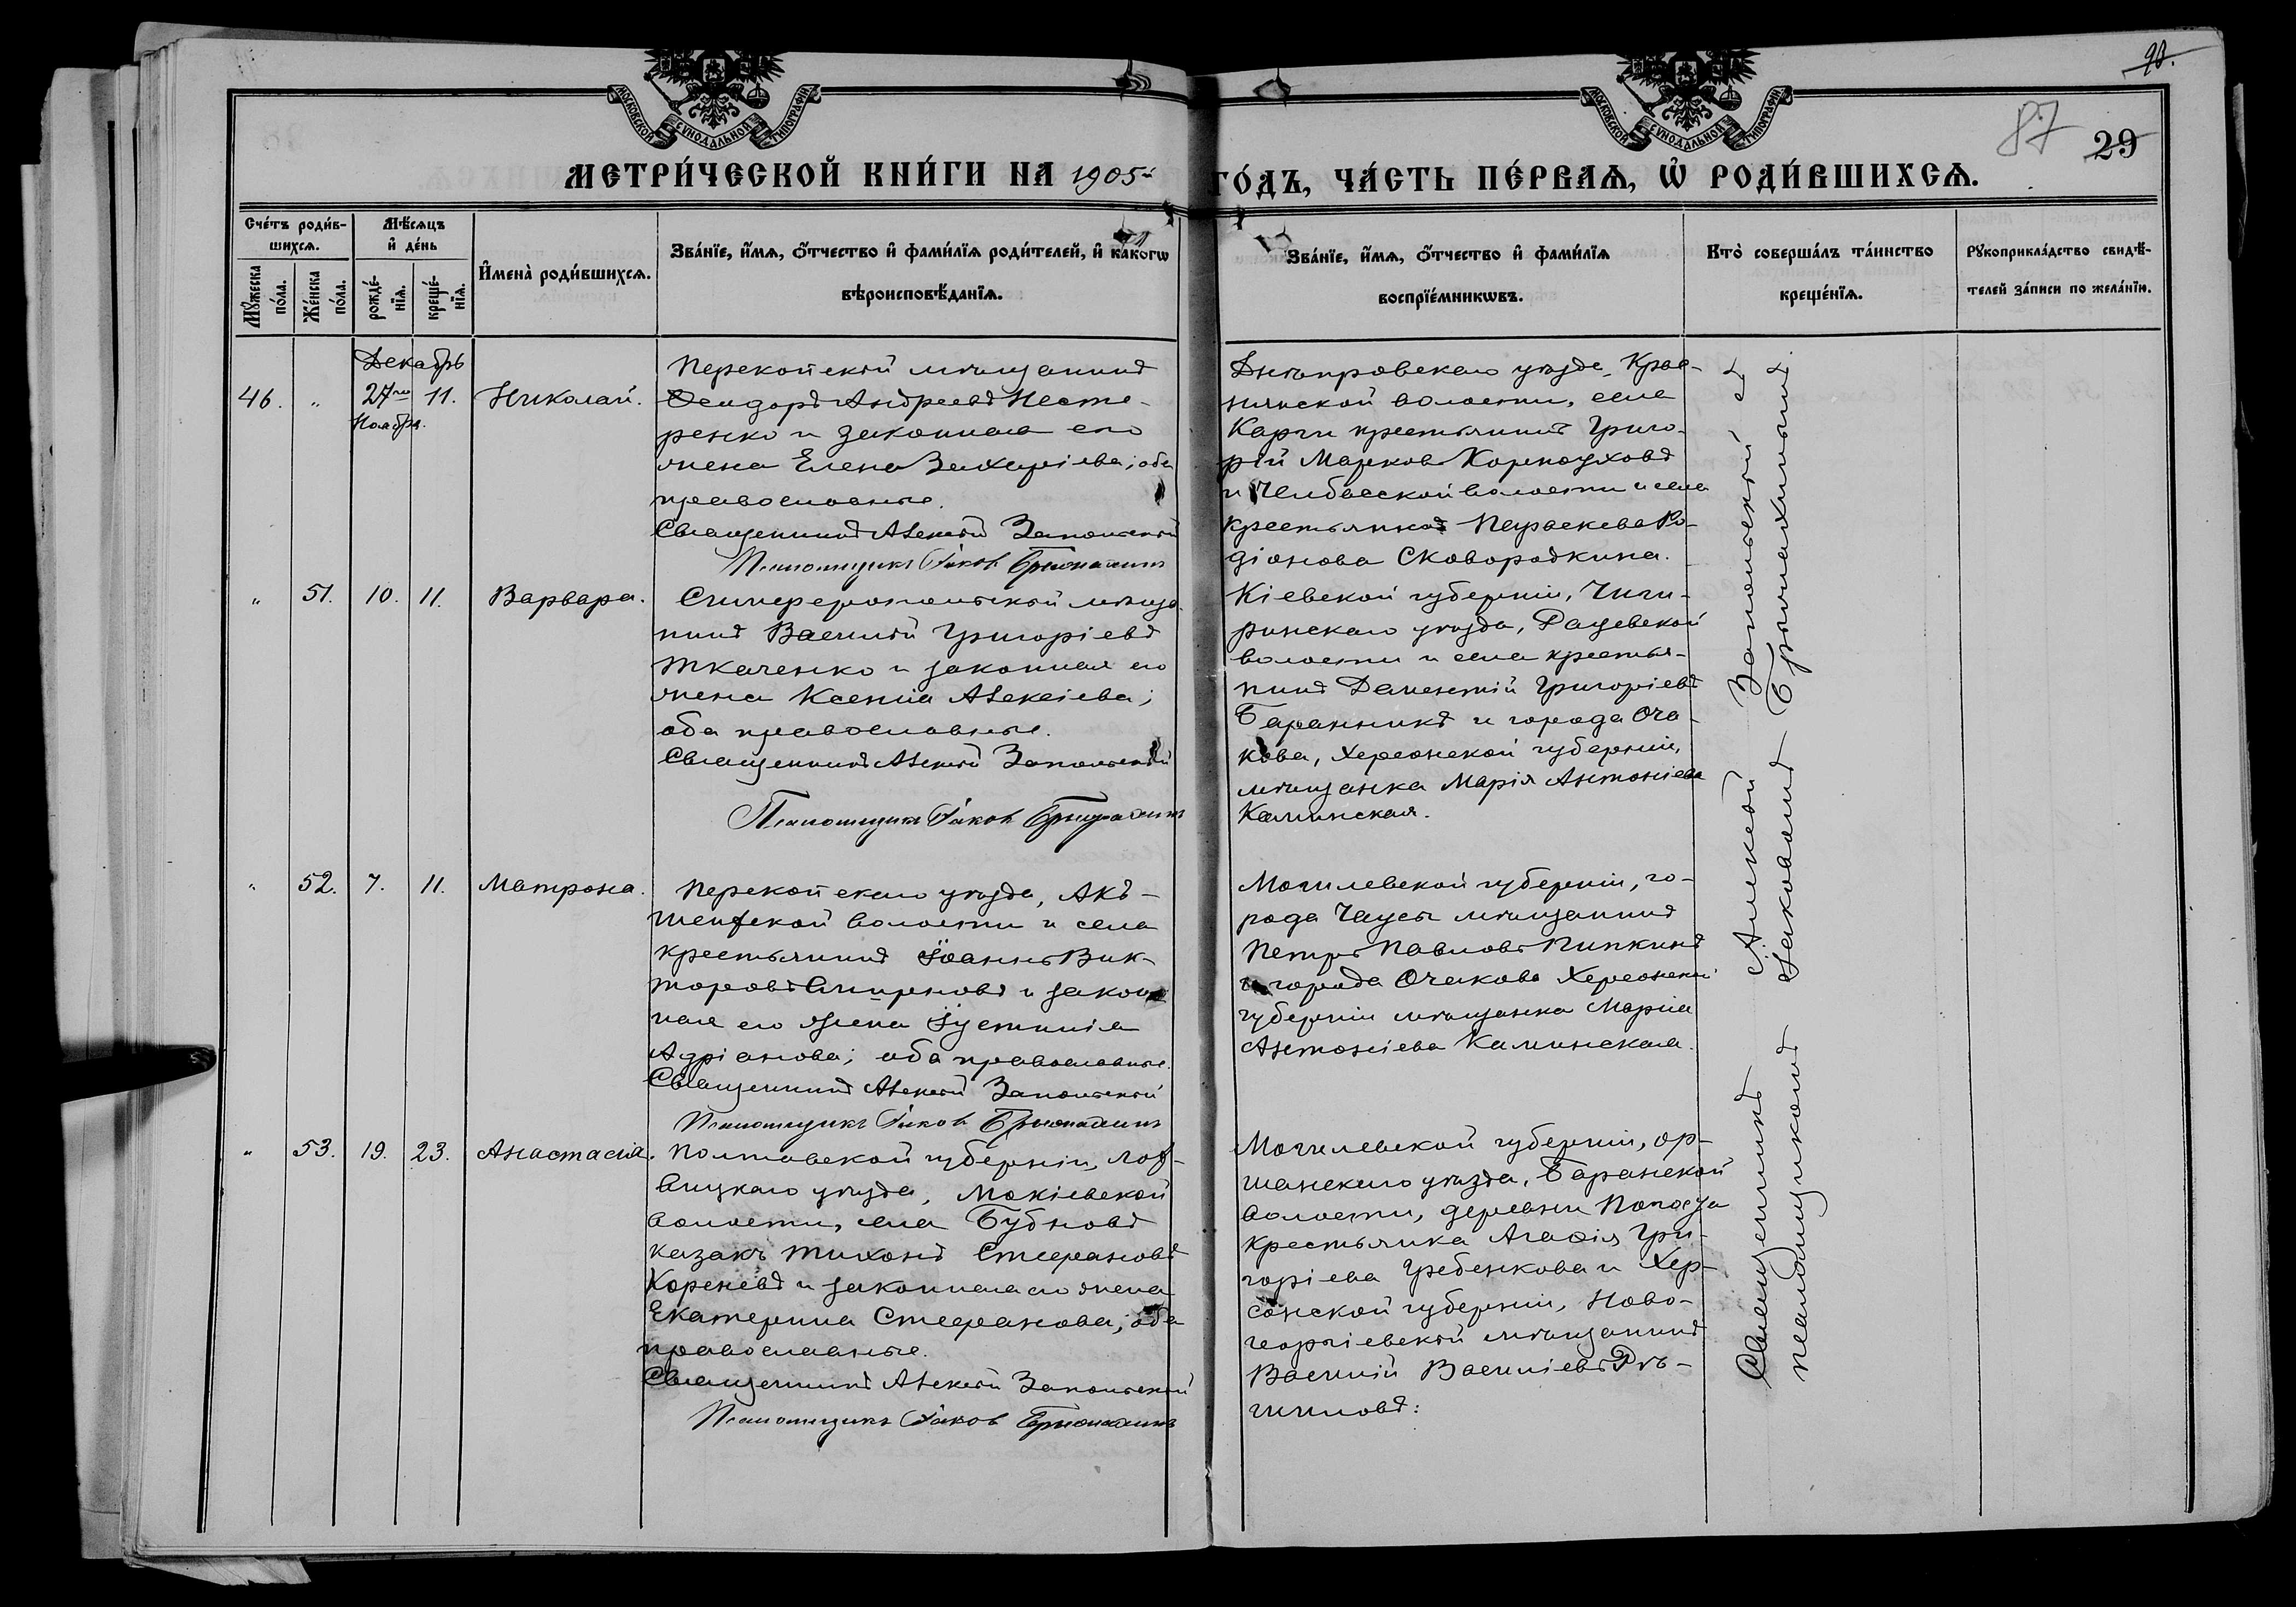 90.
87 29
МОСКОВСКОЙ СѴНОДАЛЬНОЙ ТИПОГРАФІИ
МОСКОВСКОЙ СѴНОДАЛЬНОЙ ТИПОГРАФІИ
МЕТРИ́ЧЕСКОЙ КНИ́ГИ НА 1905й ГО́ДЪ, ЧА́СТЬ ПЕ́РВАѦ, Ѡ҆ РОДИ́ВШИХСѦ.
Сче́тъ роди́в-
шихсѧ.
Мꙋ́жеска по́ла.
Же́нска по́ла.
Мѣ́сѧцъ и҆ де́нь
рожде́-нїѧ.
креще́-нїѧ.
И҆мена̀ роди́вшихсѧ.
Зва́нїе, и҆́мѧ, о҆́тчество и҆ фами́лїѧ роди́телей, и҆ како́гѡ
вѣроисповѣ́данїѧ.
Зва́нїе, и҆́мѧ, о҆́тчество и҆ фами́лїѧ
воспрїе́мникѡвъ.
Кто̀ соверша́лъ та́инство
креще́нїѧ.
Рꙋкоприкла́дство свидѣ́-
телей за́писи по жела́нїю.
Декабрь
46. „ 27го 11. Николай.
Ноября.
Перекопскій мѣщанинъ
Ѳеодоръ Андреевъ Несте-
ренко и законная его
жена Елена Захаріева; оба
православные.
Священникъ Алексій Запольскій
Псаломщикъ Іаковъ
Днѣпровскаго уѣзда,
волости, села
Карги крестьянинъ Григо-
рій Марковъ Корноуховъ
и Челбасской волости и села
крестьянка Параскева Ро-
діонова Сковородкина.
„ 51. 10. 11. Варвара.
Симферопольскій мѣща-
нинъ Василій Григоріевъ
Ткаченко и законная его
жена Ксенія Алексіева;
оба православные.
Священникъ Алексій Запольскій
Псаломщикъ Іаковъ
Кіевской губерніи, Чиги-
ринскаго уѣзда, Рацевской
волости и села крестья-
нинъ Григоріевъ
Баранникъ и города Оча-
кова, Херсонской губерніи,
мѣщанка Марія Антоніева
Калинская.
„ 52. 7. 11. Матрона.
Перекопскаго уѣзда, Акъ-
Шеихской волости и села
крестьянинъ Іоаннъ Вик-
торовъ Смирновъ и закон-
ная его жена Іустинія
Адріанова; оба православные.
Священникъ Алексій Запольскій
Псаломщикъ Іаковъ
Могилевской губерніи, го-
рода Чаусы мѣщанинъ
Петръ Павловъ Пипкинъ
и города Очакова Херсонской
губерніи мѣщанка Марія
Антоніева Калинская.
„ 53. 19. 23. Анастасія.
Полтавской губерніи, Лох-
вицкаго уѣзда, Мокіевской
волости, села Бубновъ
казакъ Тихонъ Стефановъ
Кореневъ и законная его жена
Екатерина Стефанова; оба
православные.
Священникъ Алексій Запольскій
Псаломщикъ Іаковъ
Могилевской губерніи, Ор-
шанскаго уѣзда, Баранской
волости, деревни
крестьянка Агаѳія Гри-
горіева Гребенкова и Хер-
сонской губерніи, Ново-
георгіевскій мѣщанинъ
Василій Васильевъ Рѣ-
шиловъ:
Священникъ Алексій Запольскій съ
псаломщикомъ Іаковомъ